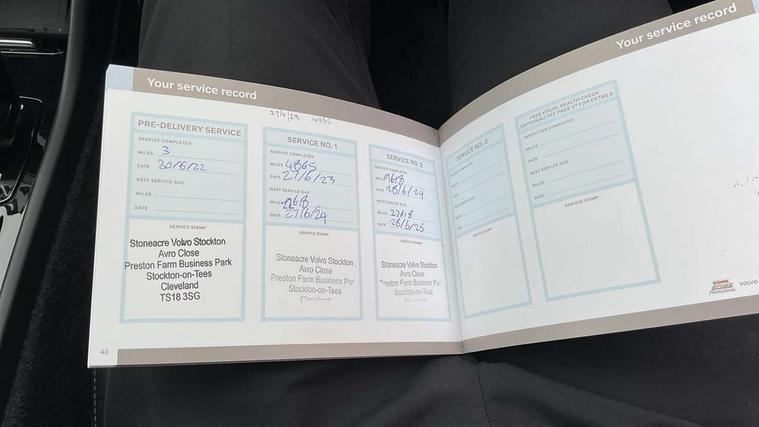 Your service record
27/6/23 4355
PRE-DELIVERY SERVICE
SERVICE COMPLETED
MILES 3
DATE 30/6/22
NEXT SERVICE DUE
MILES
DATE
SERVICE STAMP
Stoneacre Volvo Stockton
Avro Close
Preston Farm Business Park
Stockton-on-Tees
Cleveland
TS18 3SG
SERVICE NO. 1
SERVICE COMPLETED
MILES 4865
DATE 27/6/23
NEXT SERVICE DUE
MILES
DATE 27/6/24
SERVICE STAMP
Stoneacre Volvo Stockton
Avro Close
Preston Farm Business Par
Stockton-on-Tees
Cleveland
SERVICE NO. 2
SERVICE COMPLETED
MILES
DATE 28/6/24
NEXT SERVICE DUE
MILES 27618
DATE 28/6/25
SERVICE STAMP
Stoneacre Volvo Stockton
Avro Close
Preston Farm Business Park
Stockton-on-Tees
40
Your service record
SERVICE NO. 3
SERVICE COMPLETED
MILES
DATE
NEXT SERVICE DUE
MILES
DATE
SERVICE STAMP
FREE VISUAL HEALTH CHECK
(OPTIONAL) SEE PAGE 37 FOR DETAILS
INSPECTION COMPLETED
MILES
DATE
NEXT SERVICE DUE
MILES
DATE
SERVICE STAMP
Castrol
EDGE
PROFESSIONAL
VOLVO